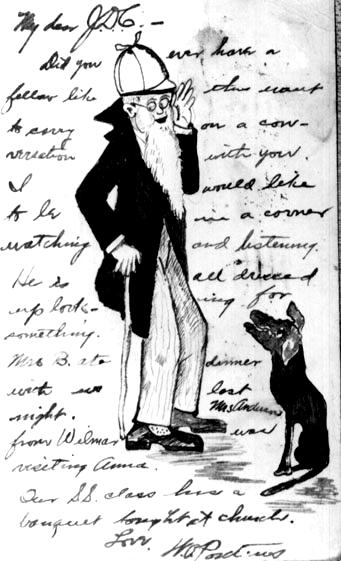 My dear J.D.C. —
Did you ever have a
fellow like this want
to carry on a con-
versation with you.
I would like
to be in a corner
watching and listening.
He is all dressed
up look- ing for
something.
Mrs B. ate dinner
with us last
night. Mrs Andrew
from Wilmar was
visiting Anna.
Our S.S. class has a
banquet tonight at church.
Love.